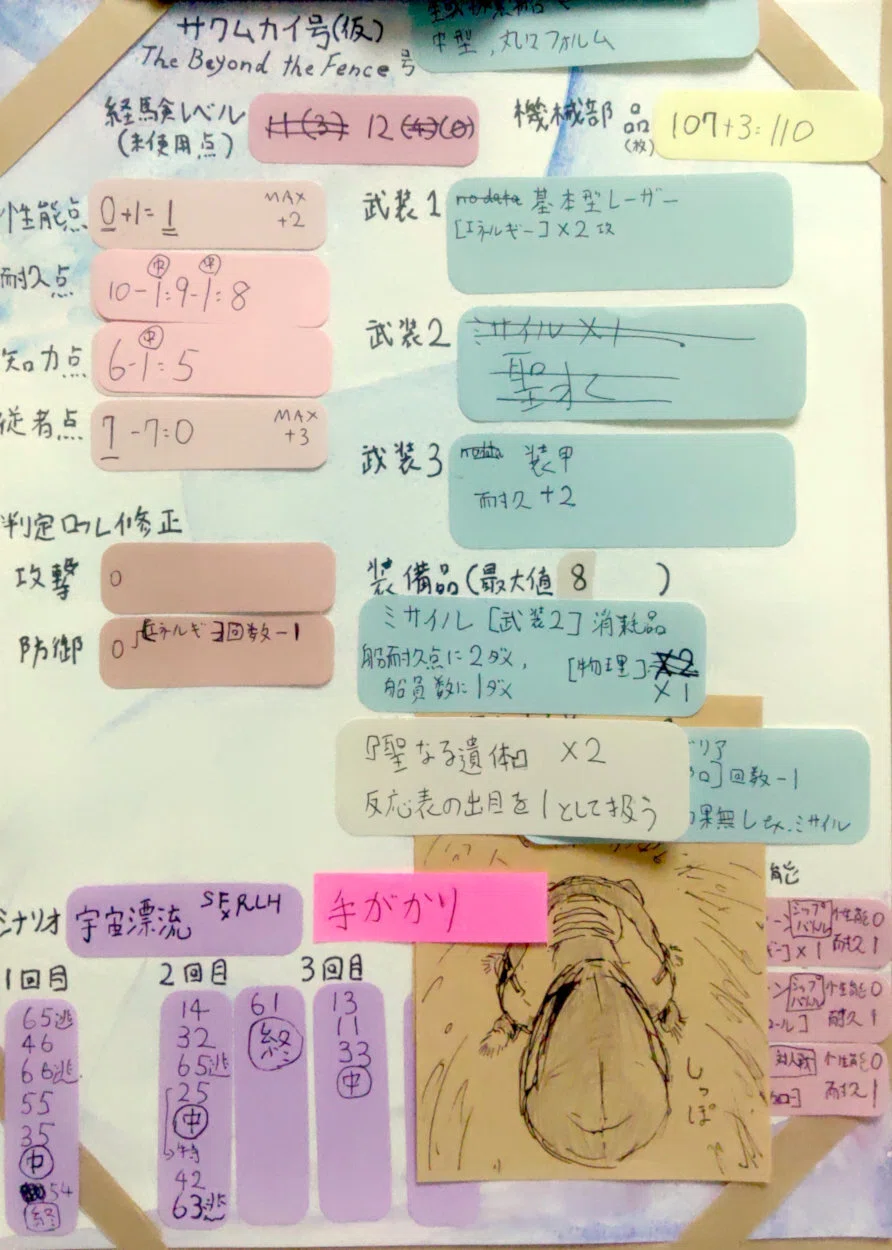 サワムカイ号(仮)
The Beyond the Fence号
中型,丸いフォルム
経験レベル
(未使用点)
11(3) 12(4)(0)
機械部品
(枚)
107+3=110
性能点
0+1=1
MAX
+2
耐久点
中 中
10-1=9-1=8
知力点
中
6-1=5
従者点
7-7=0
MAX
+3
判定ロール修正
攻撃
0
防御
0
[エネルギー]回数-1
武装1
no data 基本型レーザー
[エネルギー]×2攻
武装2
ミサイル×1
聖水
武装3
装甲
耐久+2
装備品(最大値 8 )
ミサイル[武装2]消耗品
船耐久点に2ダメ,
[物理]×2
船員数に1ダメ
×1
『聖なる遺体』 ×2
反応表の出目を1として扱う
リア
]回数-1
果無し ミサイル
シナリオ
宇宙漂流
手がかり
能
シップ
バトル
性能0
]×1
耐久1
シップ
バトル
性能0
ール]
耐久1
対人戦
性能0
耐久1
1回目
65逃
46
66逃
55
35
中
54
終
2回目
14
32
65逃
25
中
特
42
63逃
61
終
3回目
13
11
33
中
しっぽ